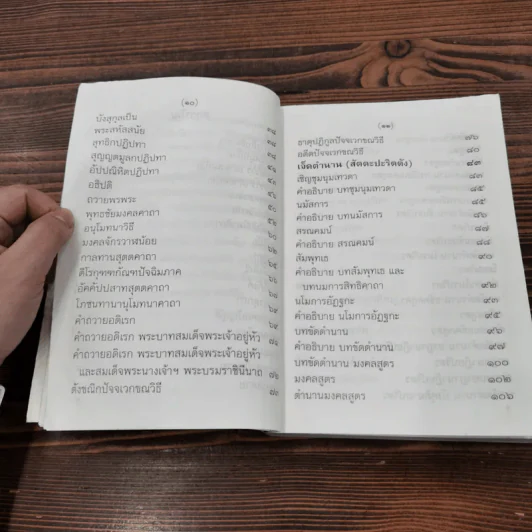 (๑๐)
บังสุกูลเป็น
พระสหัสสนัย ๔๘
สุทธิกปฏิปทา ๔๘
สุญญตมูลกปฏิปทา
อัปปณิหิตปฏิปทา
อธิปติ
ถวายพรพระ
พุทธชัยมงคลคาถา
อนุโมทนาวิธี
มงคลจักรวาฬน้อย
กาลทานสุตตคาถา ๖๕
ติโรกุฑฑกัณฑ์ปัจฉิมภาค
อัคคัปปสาทสุตตคาถา
โภชนทานานุโมทนาคาถา
คำถวายอติเรก ๖๙
คำถวายอดิเรก พระบาทสมเด็จพระเจ้าอยู่หัว
คำถวายอดิเรก พระบาทสมเด็จพระเจ้าอยู่หัว
และสมเด็จพระนางเจ้าฯ พระบรมราชินีนาถ
ตังขณิกปัจจเวกขณวิธี
(๑๑)
ธาตุปฏิกูลปัจจเวกขณวิธี ๗๖
อตีตปัจจเวกขณวิธี ๘๐
เจ็ดตำนาน (สัตตะปะริตตัง) ๘๓
เชิญชุมนุมเทวดา
คำอธิบาย บทชุมนุมเทวดา ๘๕
นมัสการ
คำอธิบาย บทนมัสการ ๘๖
สรณคมน์ ๘๗
คำอธิบาย สรณคมน์ ๘๘
สัมพุทเธ ๙๐
คำอธิบาย บทสัมพุทเธ และ
บทนมการสิทธิคาถา ๙๒
นโมการอัฏฐกะ ๙๓
คำอธิบาย นโมการอัฏฐกะ ๙๕
บทขัดตำนาน ๙๖
คำอธิบาย บทขัดตำนาน ๙๗
บทขัดตำนาน มงคลสูตร ๑๐๐
มงคลสูตร ๑๐๒
ตำนานมงคลสูตร ๑๐๖